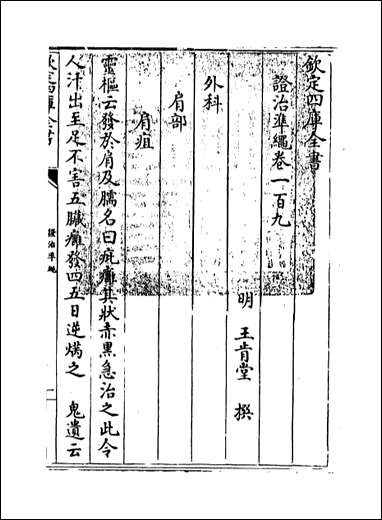 欽定四庫全書
證治準繩卷一百九
明 王肯堂 撰
外科
肩部
肩疽
靈樞云發於肩及臑名曰疵癰其狀赤黑急治之此令
人汗出至足不害五臟癰發四五日逆焫之 鬼遺云
欽定四庫全書
證治準繩
一